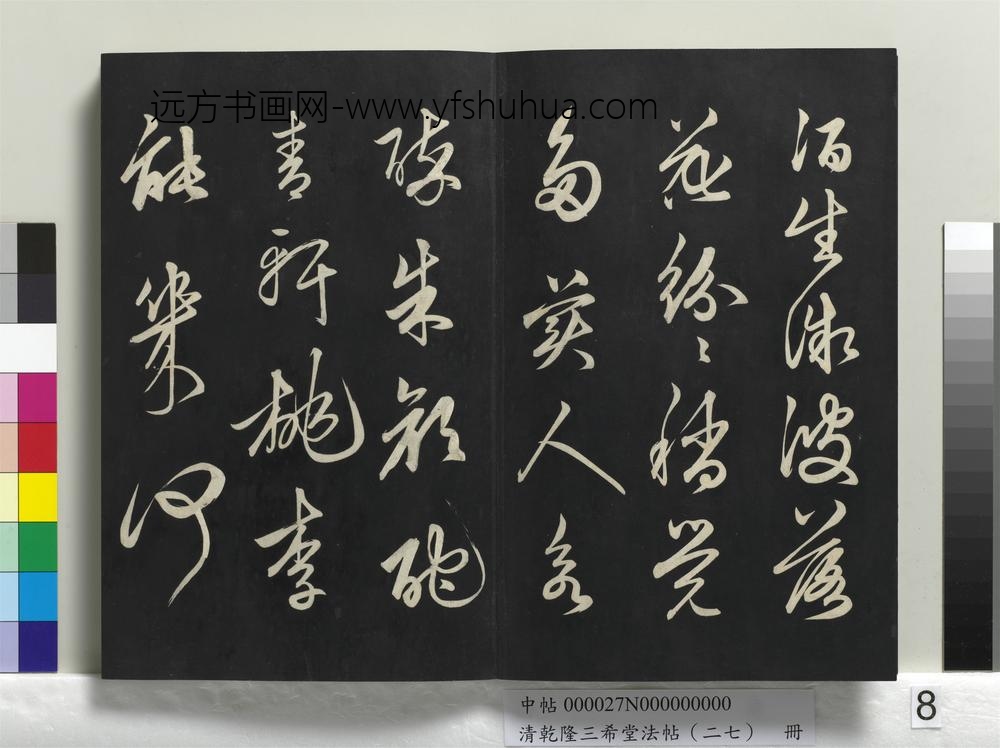 远方书画网-www.yfshuhua.com
酒生微波落
花紛紛稍覺
多美人欲
醉朱顏酡
青軒桃李
能幾何
中帖 000027N000000000
清乾隆三希堂法帖（二七） 冊
8